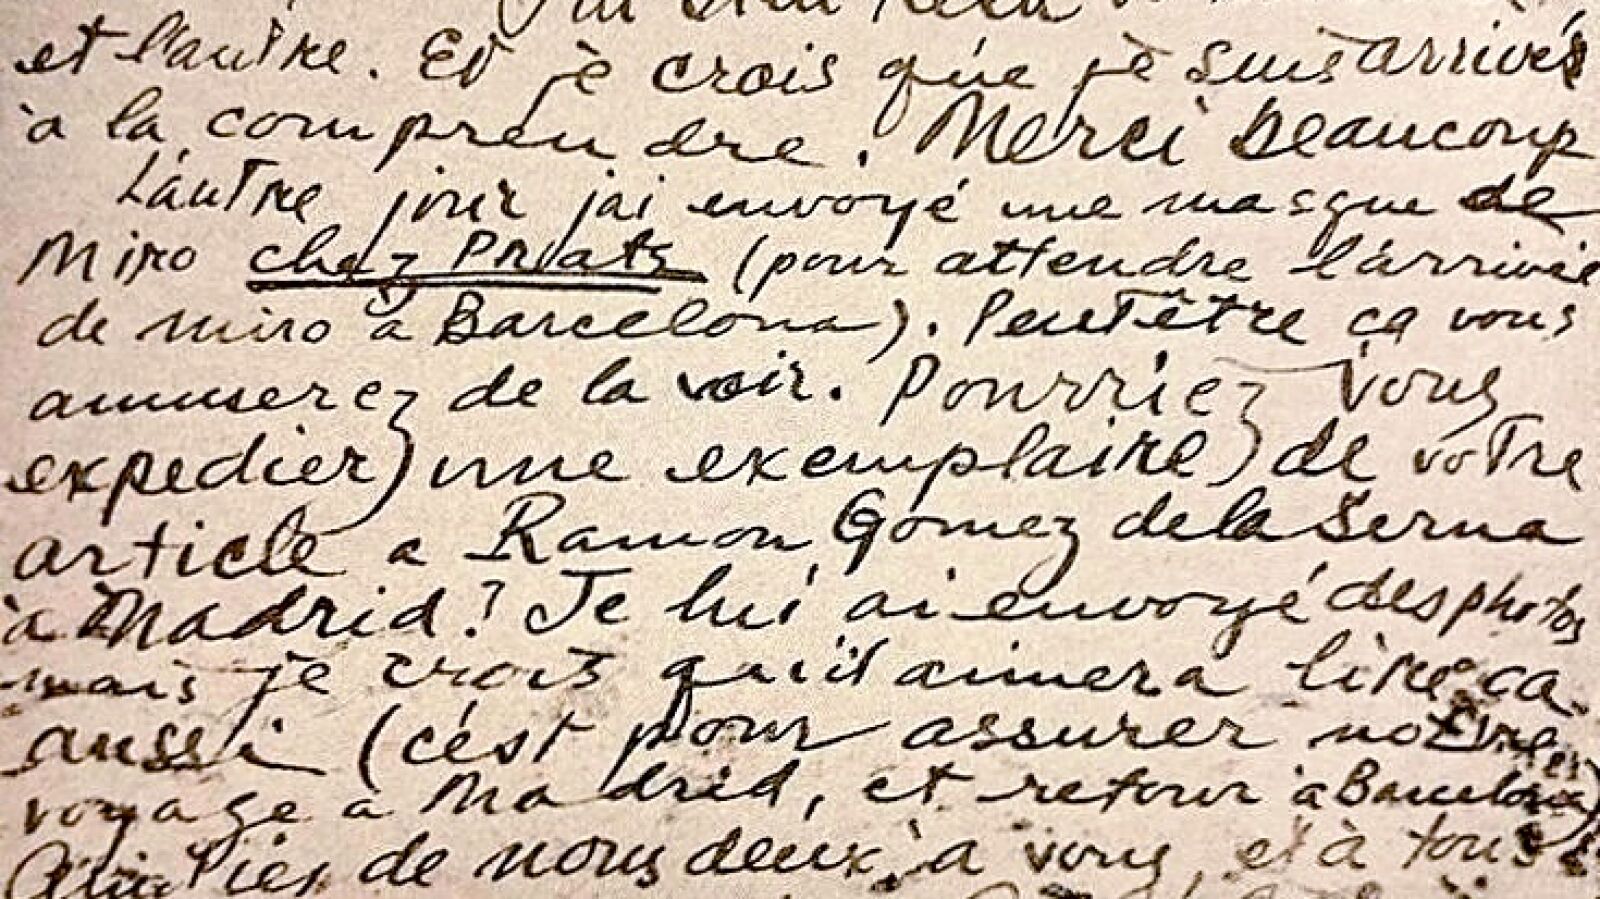 et l'autre. Et je crois que je suis arrivés
à la comprendre. Merci beaucoup
L'autre jour j'ai envoyé une masque de
Miro chez Prats (pour attendre l'arrivée
de miro à Barcelona). Peut être ça vous
amuserez de la voir. Pourriez vous
expedier une exemplaire de votre
article a Ramon Gomez de la Serna
à Madrid? Je lui ai envoyé des photos
mais je crois qu'il aimera lire ça
aussi (c'est pour assurer notre
voyage a Madrid, et retour à Barcelona)
Amitiés de nous deux, à vous, et à tous